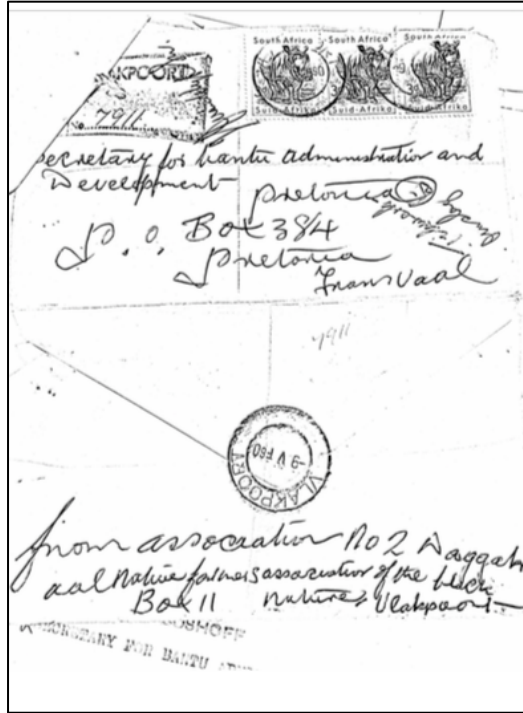 South Africa South Africa South Africa
Suid-Afrika Suid-Afrika Suid-Afrika
7911
Secretary for Bantu administration and
Development
Pretoria
P. O. Box 384
Pretoria
Transvaal
7911
VLAKPOORT
-9 V 60
from association No 2
Native farmers association of the black
Box 11 natives Vlakpoort
SECRETARY FOR BANTU